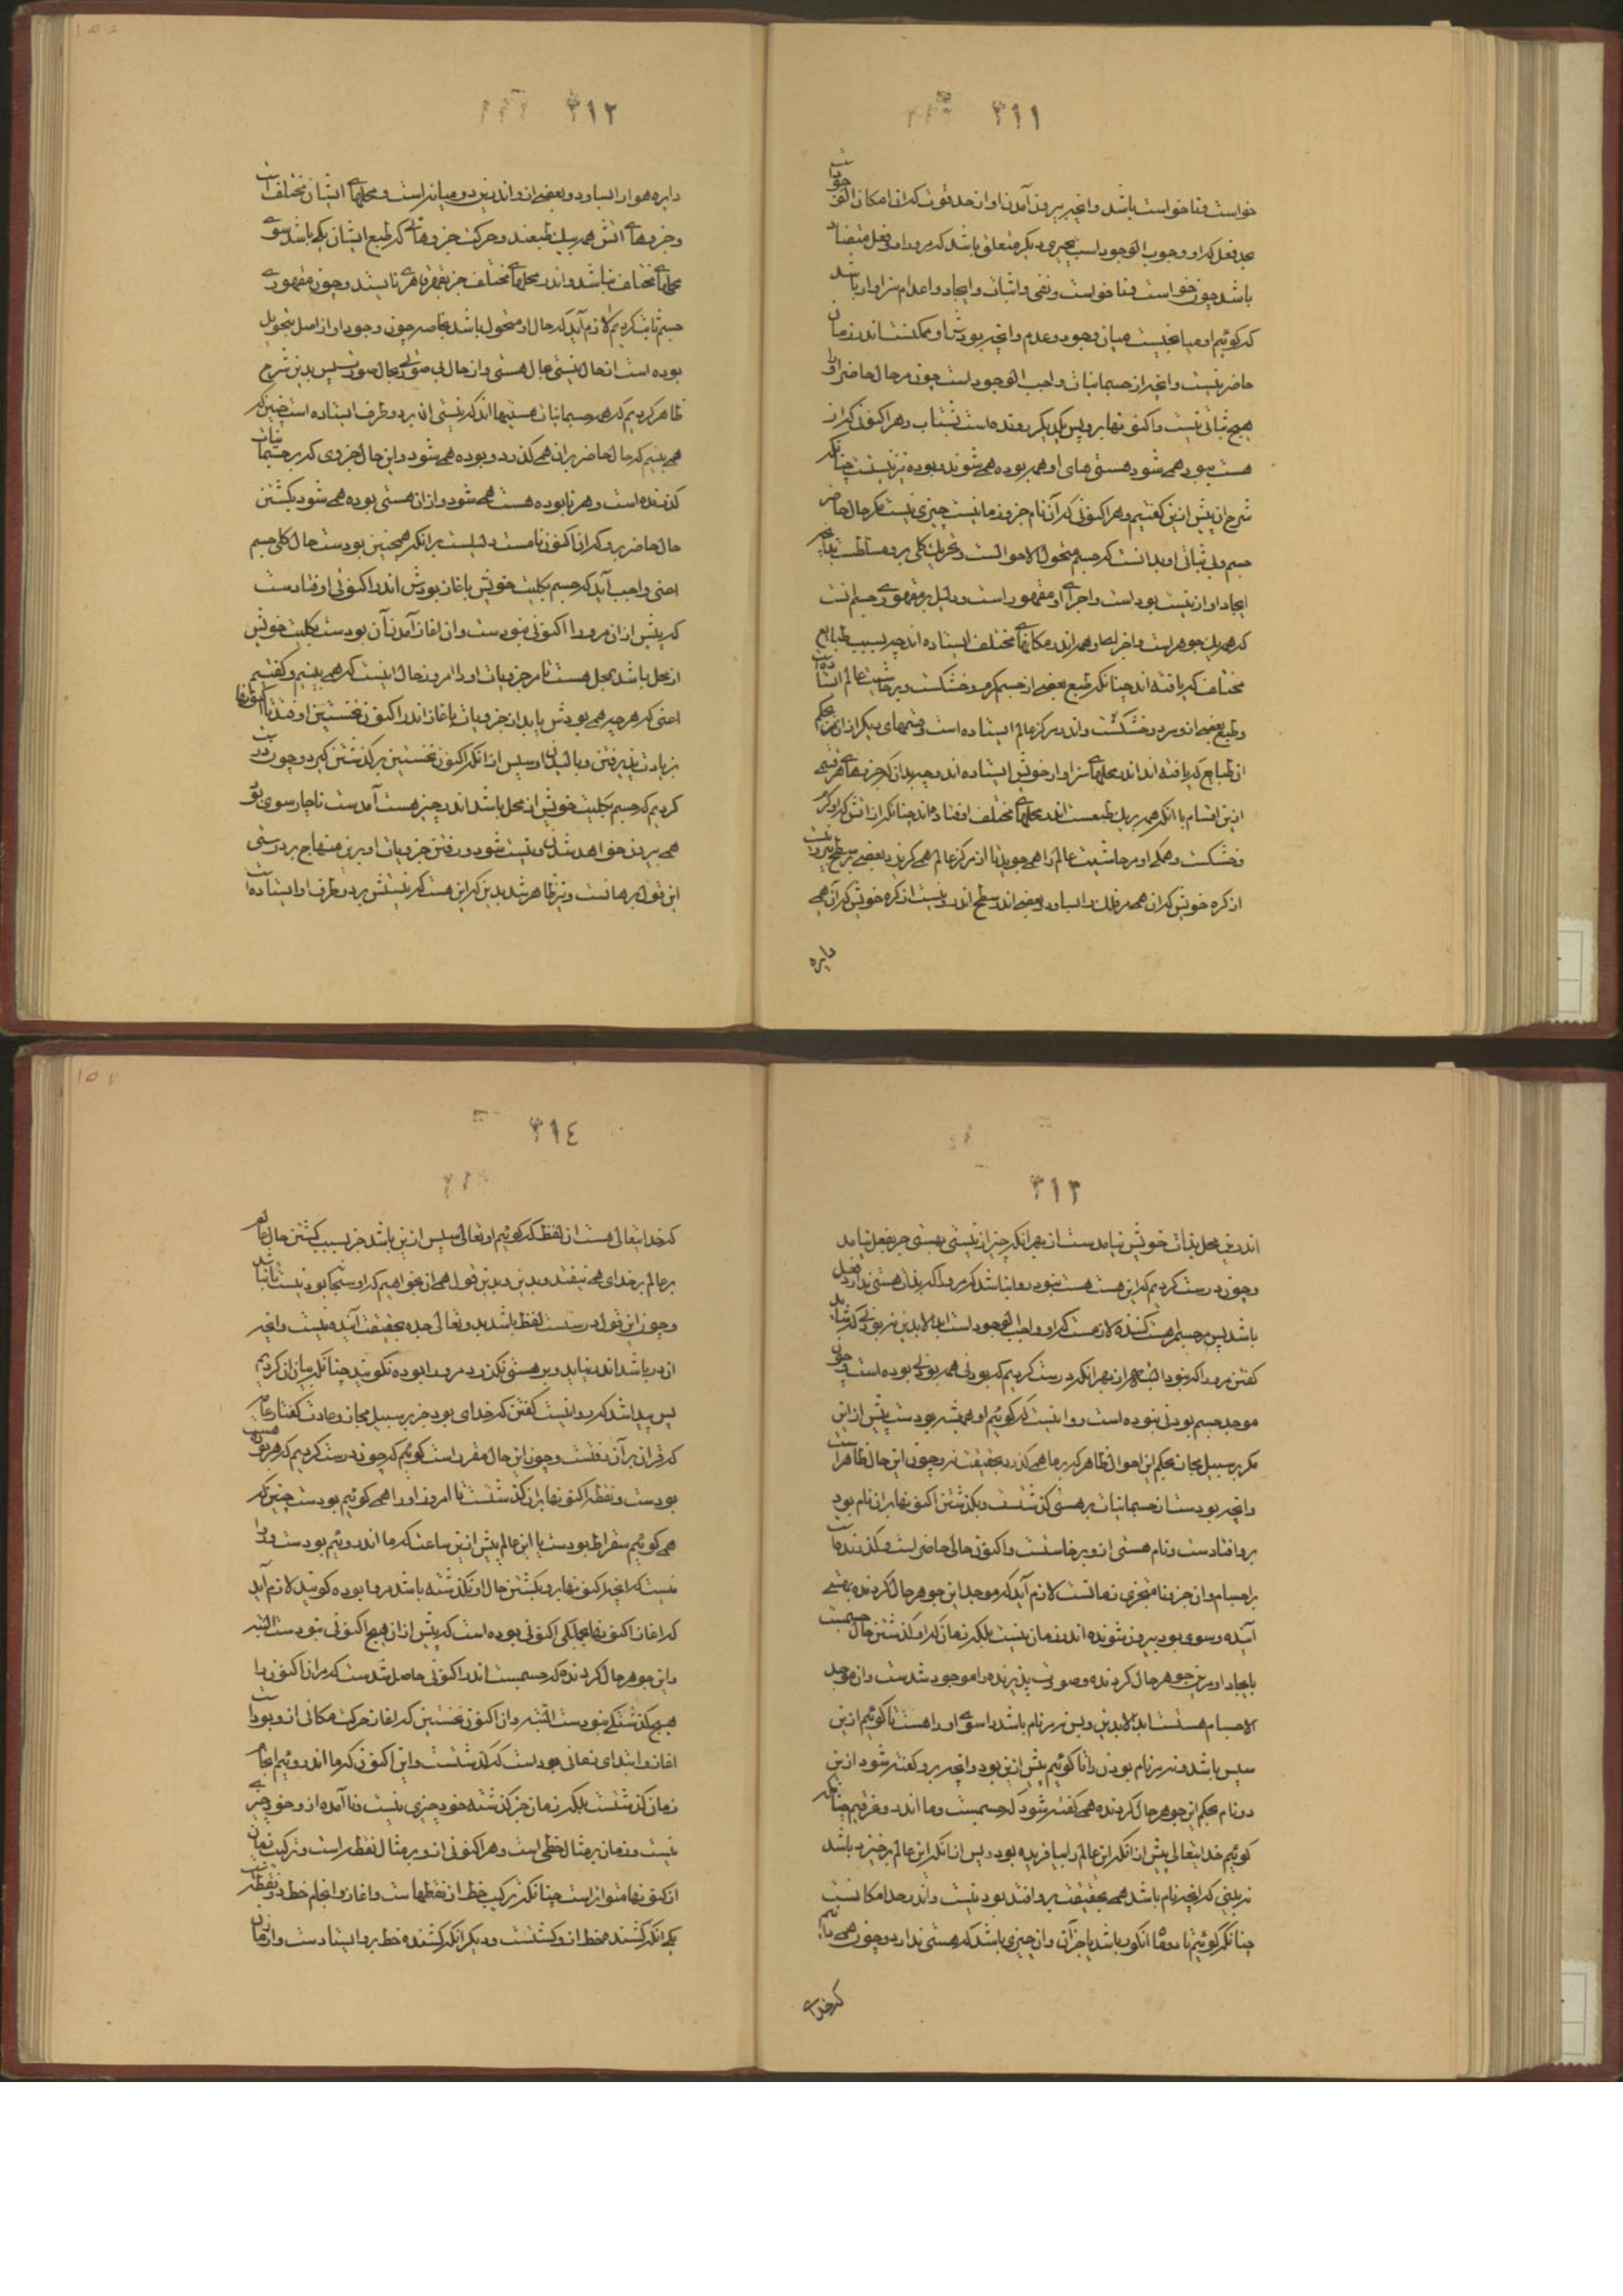 ٣١١
خواست و ناخواست باشد و انچه بیرون آمدن او از حد قوت که ان امکان الوجودست
بحد فعل که او وجوب الوجود است بچیزی دیگر متعلق باشد که مرو را دو فعل متضاد
باشد چون خواست و ناخواست و نفی و اثبات و ایجاد و اعدام سزاوار باشد
که گوئیم او میانجیست میان وجود و عدم و انچه بودش او ممکنست اندر زمان
حاضر نیست و انچه از جسمانیات واجب الوجود است چون مر حال حاضر او را
هیچ ثباتی نیست و اکنونها برو پس یکدیگر رونده است بشتاب و هر اکنونی کزان
هست بود همی شود هستی های او همه بوده همی شوند و بوده نیز نیست چنانکه
شرح ان پیش ازین گفتیم و هر اکنونی که آن نام جزو زمانیست چیزی نیست مگر حال حاضر
جسم و بی ثباتی او بدانست که جسم متحول الاحوالست و تحویل کلی برو مسلطست بدانچه
ایجاد او از نیست بود است و اجزای او مقهور است و دلیل بر مقهوری جسم انست
که همه یک جوهر است و اجزای او همه اندر مکانهای مختلف ایستاده اند چه بسبب طبایع
مختلف که یافته اند چنانکه طبع بعضی از جسم گرم و خشکست و بر حاشیت عالم ایستاده است
و طبع بعضی ازو سرد و خشکست و اندر مرکز عالم ایستاده است و قسمهای دیگر ازان هم بحکم
ان طبایع که یافته اند اندر محلهای سزاوار خویش ایستاده اند و چه بدان که جزوهای هر قسمی
ازین اقسام با آنکه همه بر یک طبعست اندر محلهای مختلف افتاده اند چنانکه از اتش که او گرم
و خشکست و همگی او مر حاشیت عالم را همی جوید تا از مرکز عالم همی گریزد بعضی بر سطح بیرونیست
از کره خویش که ان همی مر فلک را بساود و بعضی اندر سطح اندرونیست از کره خویش که آن همی
دایره
٣١٢
دایره هوا را بساود و بعضی ازو اندرین دو میانه است و محلهای ایشان مختلف است
و جزوهای اتش همه بیک طبعند و حرکت جزوهائی که طبع ایشان یکی باشد سوی
محلهای مختلف نباشد و اندر محلهای مختلف جز بقهر قاهری نایستند و چون مقهوری
جسم ثابت کردیم لازم آید که حال او متحول باشد بخاصه چون وجود او از اصل بتحویل
بوده است از حال نیستی بحال هستی و از حال بی صورتی بحال صورت پس بدین شرح
ظاهر کردیم که همه جسمانیات هستیها اند که نیستی ان بر دو طرف ایستاده است چنین که
همی بینیم که حال حاضر بران همی گذرد و بوده همی شود و این حال جزوی که بر جسمانیات
گذرنده است و هر نابوده هست همی شود و ازان هستی بوده همی شود بگشتن
حال حاضر برو که ان اکنون نامست دلیلست برانکه همچنین بودست حال کلی جسم
اعنی واجب آید که جسم بکلیت خویش باغاز بودش اندر اکنونی اوفتادست
که پیش ازان مرو را اکنونی نبودست و ان اغاز آمدن آن بودست بکلیت خویش
از محل باشد بمحل هست تا مر جزویات او را امروز حال اینست که همی بینیم و گفتیم
اعنی که هر چه همی بودش یابد از جزویات باغاز اندر اکنون نخستین اوفتد تا اکنونها
بزیادت پذیرفتن و بالیدن او سپس ازانکه اکنون نخستین برگذشتن گیرد و چون درست
کردیم که جسم بکلیت خویش از محل باشد اندر چیز هست آمدست ناچار سوی بود
همی بیرون خواهد شدن و نیست شود و رفتن جزویات او برین منهاج بر درستی
این قول برهانست و نیز ظاهر شد بدین که این هست که نیستش بر دو طرف او ایستاده است
٣١٣
اندرین محل بذات خویش نیامدست از بهر انکه چیز از نیستی بهستی جز بفعل نیامد
و چون درست کردیم که این هست هست نبود روا نباشد که مرو را که بذات هستی ندارد فعل
باشد پس مر جسم را هست کننده لازمست که او واجب الوجود است ابدالابدین نه بودنی که شاید
گفتن مرو را که نبود البته از بهر انکه درست کردیم که بودنی همه بودنی بوده است و چون
موجد جسم بودنی نبوده است روا نیست که گوئیم او همیشه بودست پیش ازاین
مگر بر سبیل مجاز بحکم این احوال ظاهر که بر ما همی گذرد بحقیقت نه و چون این حال ظاهر است
و انچه بودست از جسمانیات بر هستی گذشتست و بگذشتن اکنونها بران نام بود
برو افتادست و نام هستی ازو برخاستست و اکنون حالی حاضر است و گذرنده است
بر اجسام و ان جزو نامتجزی زمانست لازم آید که موجد این جوهر حال گردنده بهستی
آینده و سوی بود بیرون شونده اندر زمان نیست بلکه زمان که او گذشتن حال جسمست
بایجاد او مرین جوهر حال گردنده و صورت پذیرنده را موجود شدست و ان موجد
الاجسام هستست ابدالابدین و بس نه بر نام باشد را سوی او راهست تا گوئیم ازین
سپس باشد و نه بر نام بودن را تا گوئیم پیش ازین بود و انچه برو گفته شود ازین
دو نام بحکم این جوهر حال گردنده همی گفته شود که جسمست و ما اندرو غرقیم چنانکه
گوئیم خدایتعالی پیش ازانکه این عالم را بیافریده بود و پس ازانکه این عالم برخیزد باشد
نه بینی که انچه نام باشد همی بحقیقت برو افتد بود نیست و اندر حد امکانست
چنانکه گوئیم تا دو ماه انگور باشد یا جز آن و ان چیزی باشد که هستی ندارد و چون همی دانیم
که خدای
٣١٤
که خدایتعالی هست ان لفظ که گوئیم او تعالی سپس ازین باشد جز بسبب گشتن حال عالم
بر عالم بر خدای همی نیفتد و بدین و بدین قول همی ان نخواهیم که او سبحانه بود نیست تا نباشد
و چون این قول درستست لفظ باشد بد و تعالی جده بحقیقت آینده نیست و انچه
از در باشد اندر نیاید و برو هستی نگذرد مرو را بوده نگویند چنانکه بیان ان کردیم
پس پیدا شد که روا نیست گفتن که خدای بود جز بر سبیل مجاز و عادت گفتار عام
که قران بر آن رفتست و چون این حال مقرر است گوئیم که چون درست کردیم که هر بوده هست
بودست و نقطه اکنونها بران گذشتست تا امروز او را همی گوئیم بودست چنین که
همی گوئیم سقراط بودست یا این عالم پیش ازین ساعت که ما اندروئیم بودست و روا
نیست که انچه اکنونها برو بگشتن حال او نگذشته باشد مرو را بوده گویند لازم آید
که اغاز اکنونها بجملگی اکنونی بوده است که پیش ازان هیچ اکنونی نبودست البته
و این جوهر حال گردنده که جسمست اندر اکنونی حاصل شدست که مران اکنون را
هیچ گذشتگی نبودست البته و از اکنون نخستین که اغاز حرکت مکانی ازو بود است
اغاز و ابتدای زمانی بودست که گذشتست و این اکنون که ما اندروئیم انجام
زمان گذشتست بلکه زمان جز گذشته خود چیزی نیست و نا آمده ازو خود چیزی
نیست و زمان بر مثال خطی است و هر اکنونی ازو بر مثال نقطه است و ترکیب زمان
از اکنونها متواتر است چنانکه ترکیب خط از نقطهاست و اغاز و انجام خط دو نقطه است
یکی انکه کشنده خط ازو کشتست و دیگر انکه کشنده خط برو ایستادست و از زمان